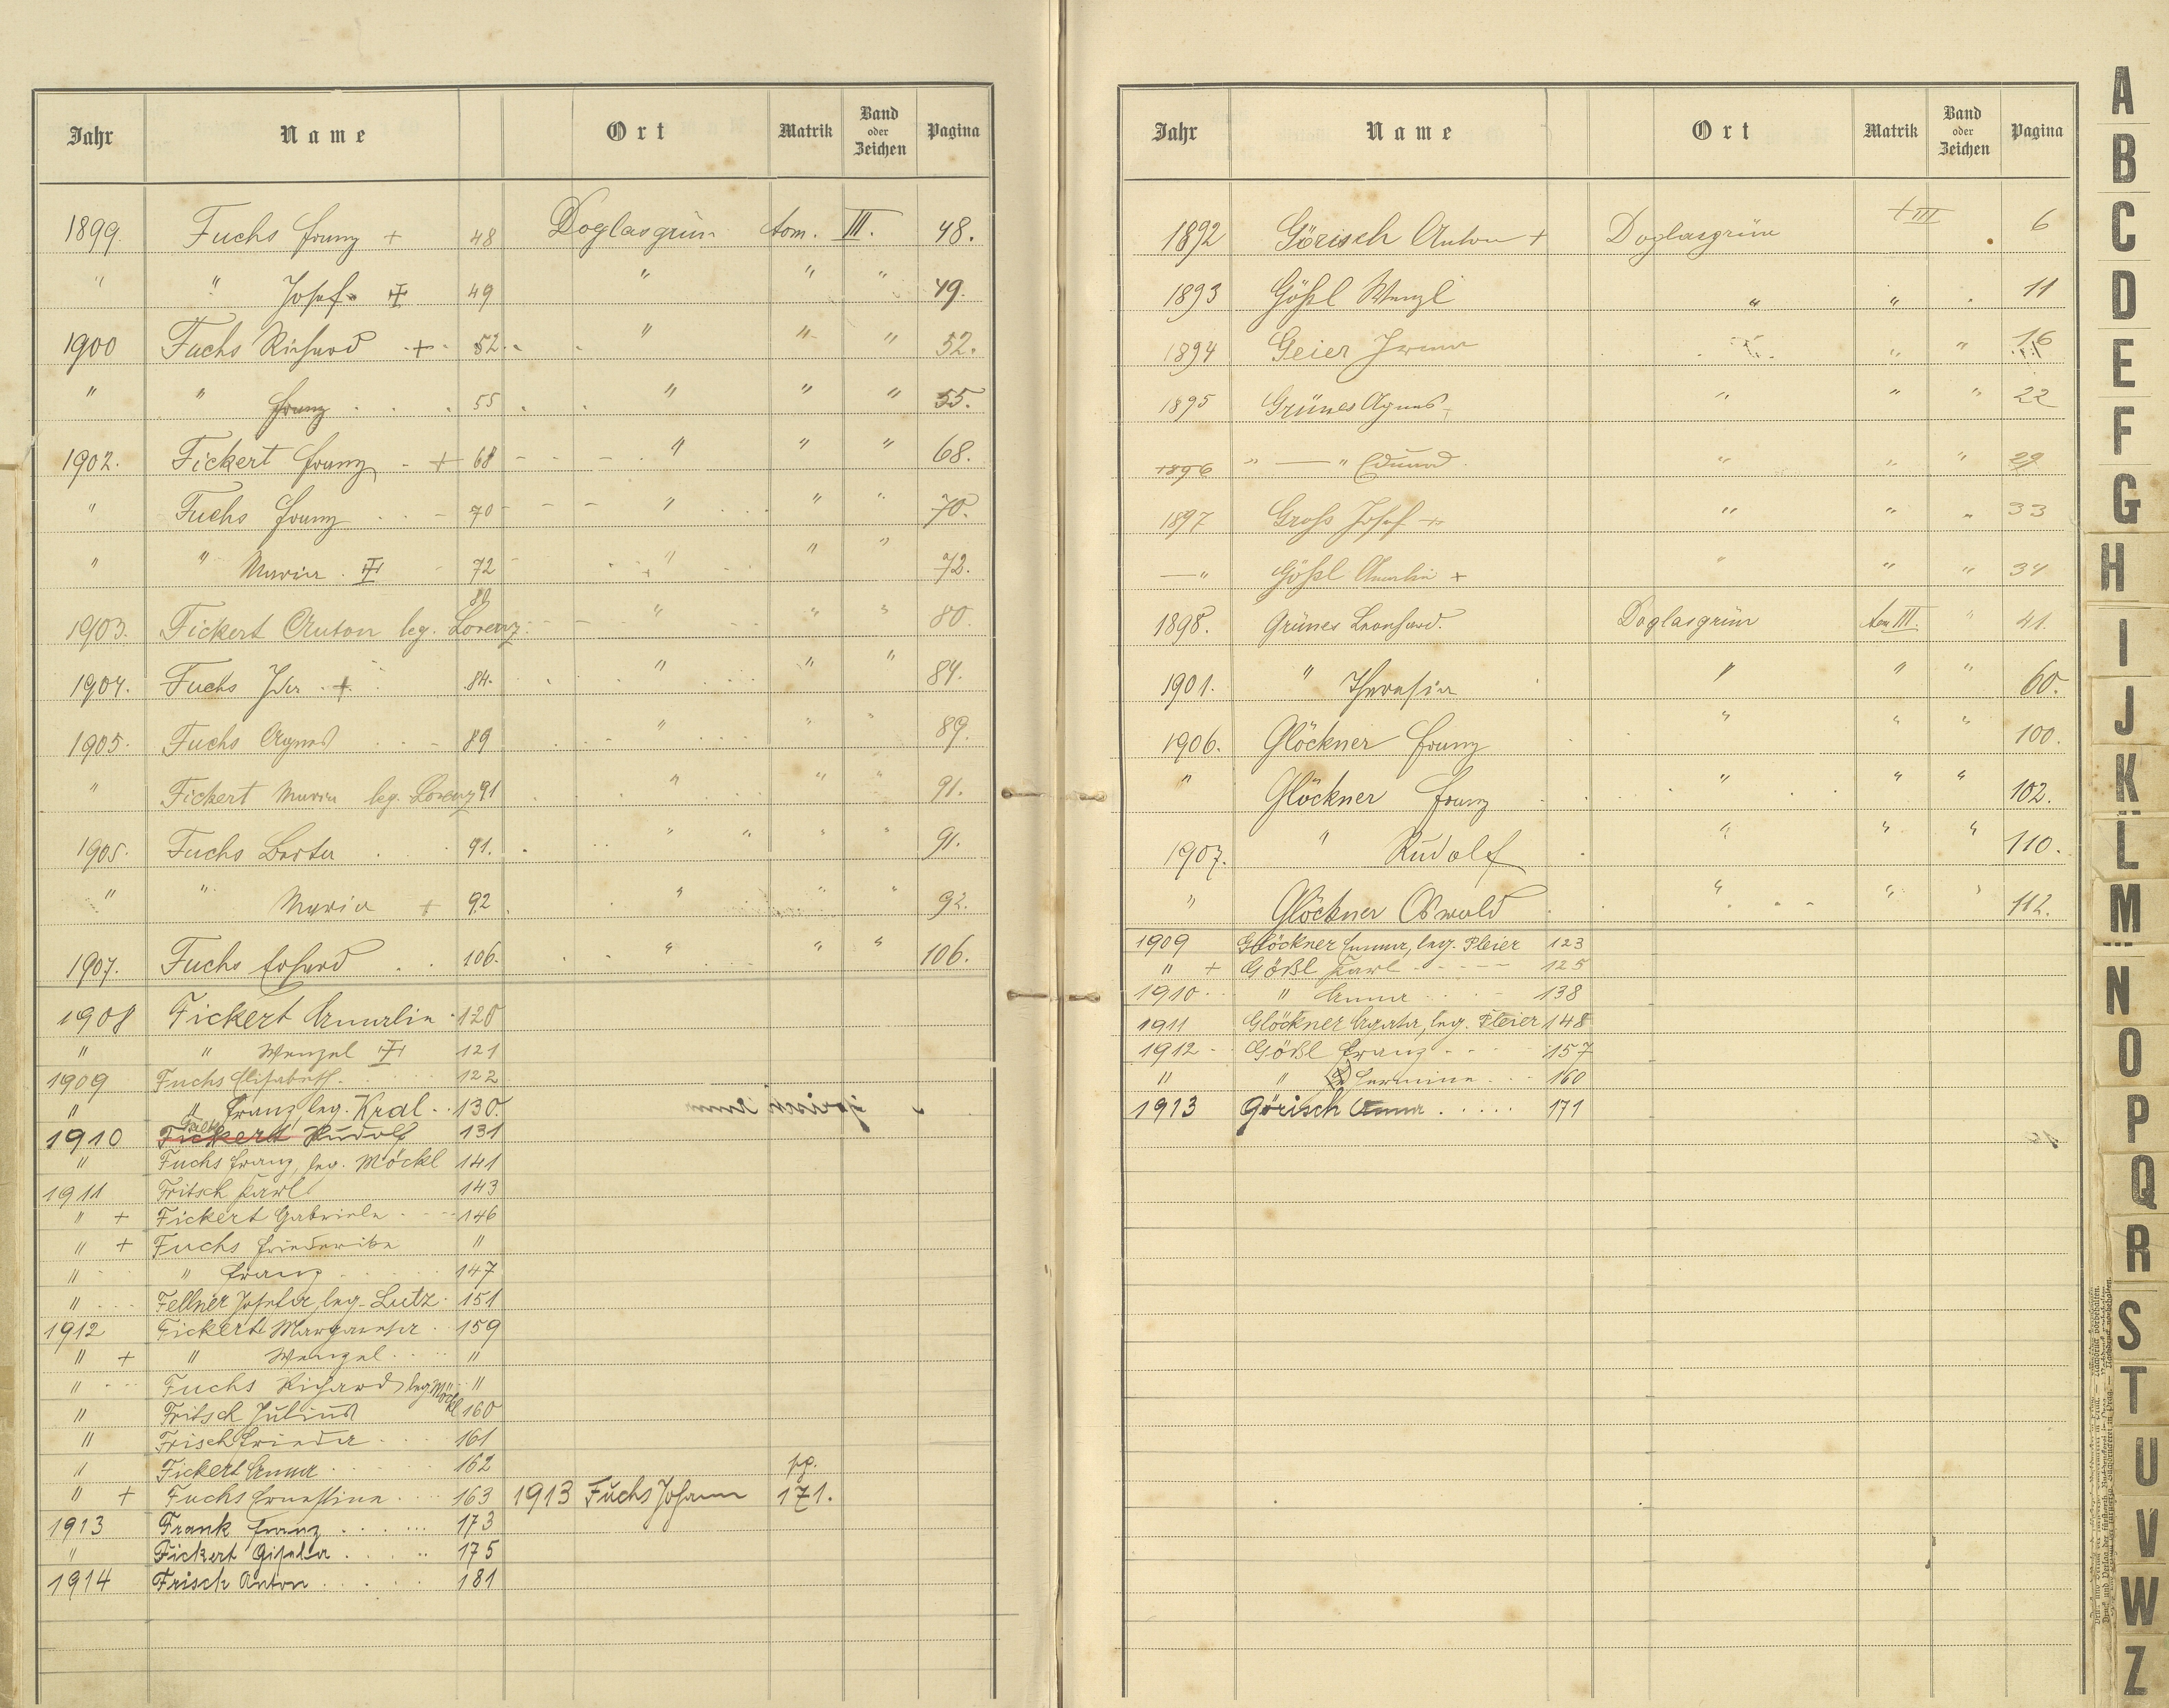 Jahr Name Ort Matrik Band oder Zeichen Pagina
1899. Fuchs Franz + 48 Doglasgrün tom. III. 48.
" " Josef 49 " " " 49.
1900 Fuchs Richard + 52. " " " 52.
" " Franz 55 " " " 55.
1902. Fickert Franz + 68 " " " 68.
" Fuchs Franz 70 " " " 70.
" " Maria 72 " " " 72.
1903. Fickert Anton leg. Lorenz 80 " " " 80.
1904. Fuchs Ida + 84. " " " 84.
1905. Fuchs Agnes 89 " " " 89.
" Fickert Maria leg. Lorenz 91 " " " 91.
1905. Fuchs Berta 91. " " " " 91.
" " Maria + 92 " " " 92.
1907. Fuchs Erhard 106. " " " 106.
1908 Fickert Amalia 120
" " Wenzel 121
1909 Fuchs Elisabeth 122
" " Franz, leg. Kral 130.
1910 Fickert Rudolf 131
" Fuchs Franz, leg. Möckl 141
1911 Fritsch Karl 143
" + Fickert Gabriela 146
" + Fuchs Friederika "
" " Franz 147
" Fellner Josefa, leg. Lutz 151
1912 Fickert Margaretha 159
" + " Wenzel "
" Fuchs Richard, leg. Möckl "
" Fritsch Julius 160
" Frisch Frieda 161
" Fickert Anna 162 pp.
" + Fuchs Ernestine 163 1913 Fuchs Johann 171.
1913 Frank Franz 173
" Fickert Gisela 175
1914 Frisch Anton 181
Jahr Name Ort Matrik Band oder Zeichen Pagina
1892 Görisch Anton + Doglasgrün t III 6
1893 Gößl Wenzl " " 11
1894 Geier Irma " " 16
1895 Grünes Agnes " " " 22
+1896 " — " Eduard " " " 29
1897 Groß Josef + " " " 33
—" Gößl Amalia + " " " 34
1898. Grünes Leonhard. Doglasgrün tom III. " 41.
1901. " Theresia " " " 60.
1906. Glöckner Franz " " " 100.
" Glöckner Franz " " " 102.
1907. " Rudolf " " " 110.
" Glöckner Oswald " " " 112.
1909 Glöckner Emma, leg. Pleier 123
" + Gößl Karl 125
1910 " Anna 138
1911 Glöckner Agata, leg. Pleier 148
1912 Gößl Franz 157
" " Hermine 160
1913 Görisch Anna 171
A
B
C
D
E
F
G
H
I
J
K
L
M
N
O
P
Q
R
S
T
U
V
W
Z